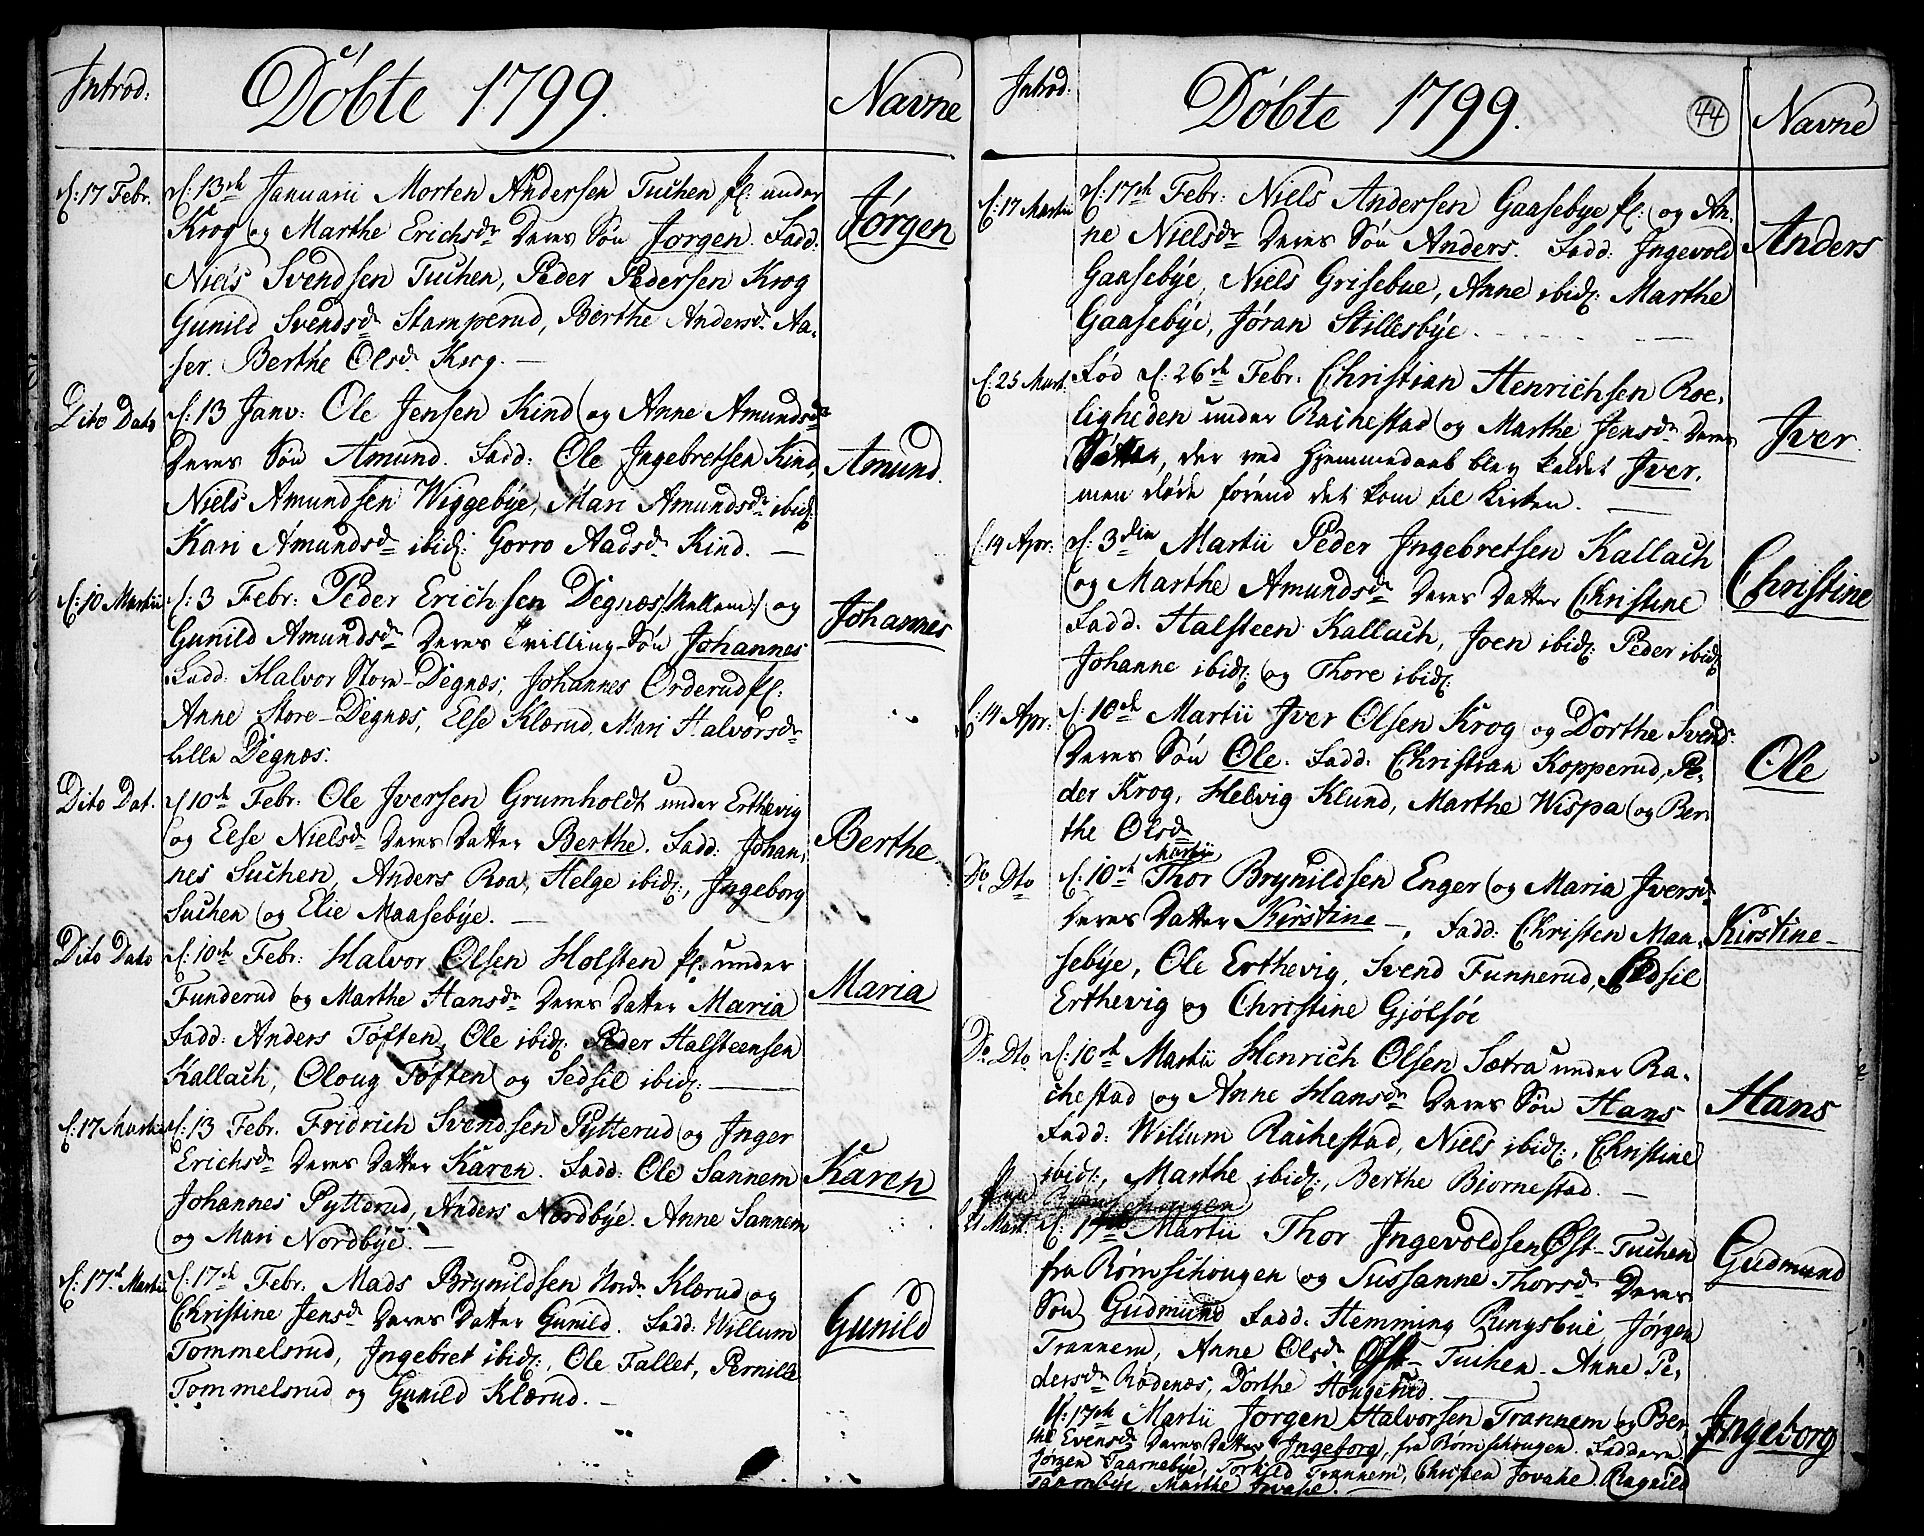 Introd:
Döbte 1799.
Navne
d: 17 Febr.
d: 13de Januarii Morten Andersen Tuchen pl: under
Krog og Marthe Erichsdr Deres Sön Jörgen. Fadd:
Jörgen
Niels Svendsen Tuchen, Peder Pedersen Krog
Gunild Svendsdr Stamperud, Berthe Andersdr Aa-
ser. Berthe Olsdr Krog. —
Dito Dato
d: 13 Janv: Ole Jensen Kind og Anne Amundsdr
Deres Sön Amund. Fadd: Ole Ingebretsen Kind,
Amund.
Niels Amundsen Wiggebÿe, Mari Amundsdr ibid:
Kari Amundsdr ibid: Gorro Aadsdr Kind. —
d: 10 Martii
d: 3 Febr: Peder Erichsen Degnæs /Mellem/ og
Gunild Amundsdr Deres Tvilling-Sön Johannes
Johannes
Fadd: Halvor Store-Degnæs, Johannes Orderud pl:
Anne Store-Degnæs, Else Klærud, Mari Halvorsdr
Lille Degnæs.
Dito Dat.
d 10de Febr: Ole Jversen Grumholdt under Erthevig
og Else Nielsdr Deres Datter Berthe. Fadd: Johan-
Berthe
nes Suchen, Anders Roa, Helge ibid:, Ingeborg
Suchen og Elie Maasebÿe. —
Dito Dato
d: 10de Febr: Halvor Olsen Holsten pl: under
Funderud og Marthe Hansdr Deres Datter Maria
Maria
Fadd: Anders Töften, Ole ibid: Peder Halsteensen
Kallach, Oloug Töften og Sedsil ibid: —
d: 17 Martii
d: 13 Febr. Fridrich Svendsen Pÿtterud og Inger
Erichsdr Deres Datter Karen. Fadd: Ole Sannem
Karen
Johannes Pÿtterud, Anders Nordbÿe. Anne Sannem
og Mari Nordbÿe. —
d: 17d Martii
d: 17de Febr. Mads Brynildsen Nordr Klærud og
Christine Jensdr Deres Datter Gunild. Fadd: Willum
Gunild
Tommelsrud, Ingebret ibid:, Ole Fallet, Pernille
Tommelsrud og Gunild Klærud. —
Introd:
Döbte 1799.
44
Navne
d: 17 Martii
d: 17de Febr: Niels Andersen Gaasebye pl: og An-
ne Nielsdr Deres Sön Anders. Fadd: Ingevold
Anders
Gaasebÿe, Niels Grisebue, Anne ibid: Marthe
Gaasebÿe, Jöran Stillesbÿe.
d: 25 Mart.
Föd d: 26de Febr: Christian Henrichsen Roe-
ligheden under Rachestad og Marthe Jensdr Deres
Jver.
der ved Hjemmedaab blev kaldet Jver.
men döde förend det kom til Kirken. —
d: 14 Apr:
d: 3die Martii Peder Ingebretsen Kallach
og Marthe Amundsdr Deres Datter Christine
Christine
Fadd. Halsteen Kallach, Joen ibid: Peder ibid:
Johanne ibid: og Thore ibid:
d: 14 Apr:
d: 10de Martii Jver Olsen Krog og Dorthe Svendsdr
Deres Sön Ole. Fadd: Christian Kopperud, Pe-
Ole
der Krog, Helvig Klund, Marthe Wispa og Ber-
the Olsdr
Do Dto
Martii
d: 10de Thor Brynildsen Enger og Maria Jversdr
Deres Datter Kirstine —, Fadd: Christen Maa-
Kirstine —
sebÿe, Ole Erthevig, Svend Funnerud, Sedsil
Erthevig og Christine Gjölsöe
Do Dto
d: 10de Martii Henrich Olsen Sætra under Ra-
chestad og Anne Hansdr Deres Sön Hans
Hans
Fadd: Willum Rachestad, Niels ibid:, Christine
ibid:, Marthe ibid:, Berthe Biornestad. —
21 Mart.
d: 17de Martii Thor Ingevoldsen Öst-Tuchen
fra Römschougen og Sussanne Thorsdr Deres
Gudmund
Sön Gudmund Fadd: Hemming Rungsbue, Jörgen
Trannem, Anne Olsdr Öst-Tuchen. Anne Pe-
dersdr Rödenæs, Dorthe Hougerud.
d: 17de Martii Jorgen Halvorsen Trannem og Ber-
the Evensdr Deres Datter Ingeborg, fra Römschougen. Faddere
Ingeborg
Jörgen Taarnebÿe, Torkild Trannem, Christen Jovahe. Ragnild
Taarnebÿe, Marthe Jovahe. —